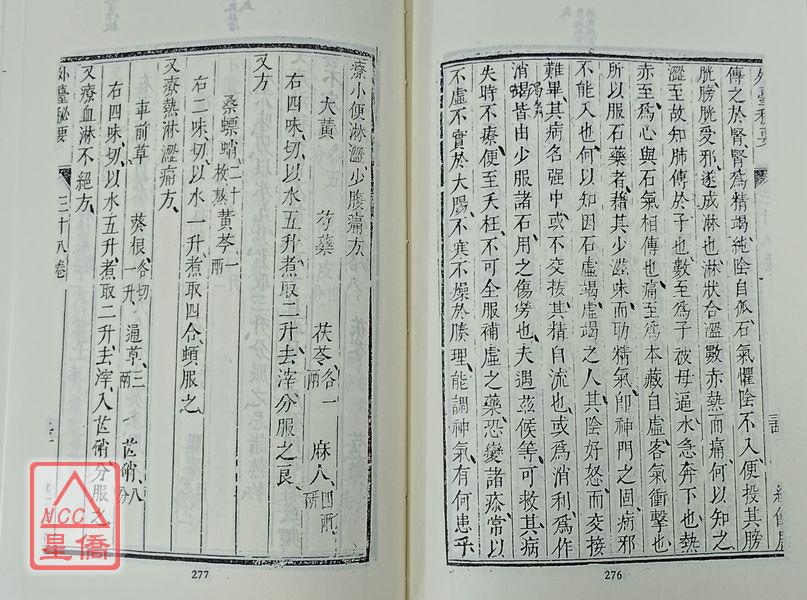 傳之於腎腎爲精竭純陰自孤石氣懼陰不入便投其膀
胱膀胱受邪遂成淋也淋狀合澀數赤熱而痛何以知之
澀至故知肺傳於子也數至爲子被母逼水急奔下也熱
赤至爲心與石氣相傳也痛至爲本藏自虛客氣衝擊也
所以服石藥者藉其少滋味而助精氣即神門之固病邪
不能入也何以知因石虛竭虛竭之人其陰好怒而交接
難畢其病名强中或不交接其精自流也或爲消利爲作
消渴皆由少服諸石用之傷勞也夫遇茲候等可救其病
失時不療便至夭枉不可全服補虛之藥恐變諸疹常以
不虛不實於大腸不寒不燥於腠理能調神氣有何患乎
276
療小便淋澀少腹痛方
大黃 芍藥 茯苓各一兩 麻人四兩研
右四味切以水五升煮取二升去滓分服之良
又方
桑螵蛸二十枚熬 黃芩一兩
右二味切以水一升煮取四合頓服之
又療熱淋澀痛方
車前草 葵根各切一升 通草三兩 芒硝八分
右四味切以水五升煮取二升去滓入芒硝分服之
又療血淋不絕方
外臺秘要 三十八卷
277
NCC
星僑